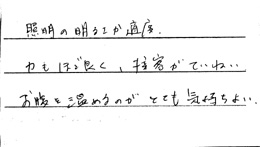 照明の明るさが適度。
力もほど良く、接客がていねい
お腹を温めるのがとても気持ちよい。